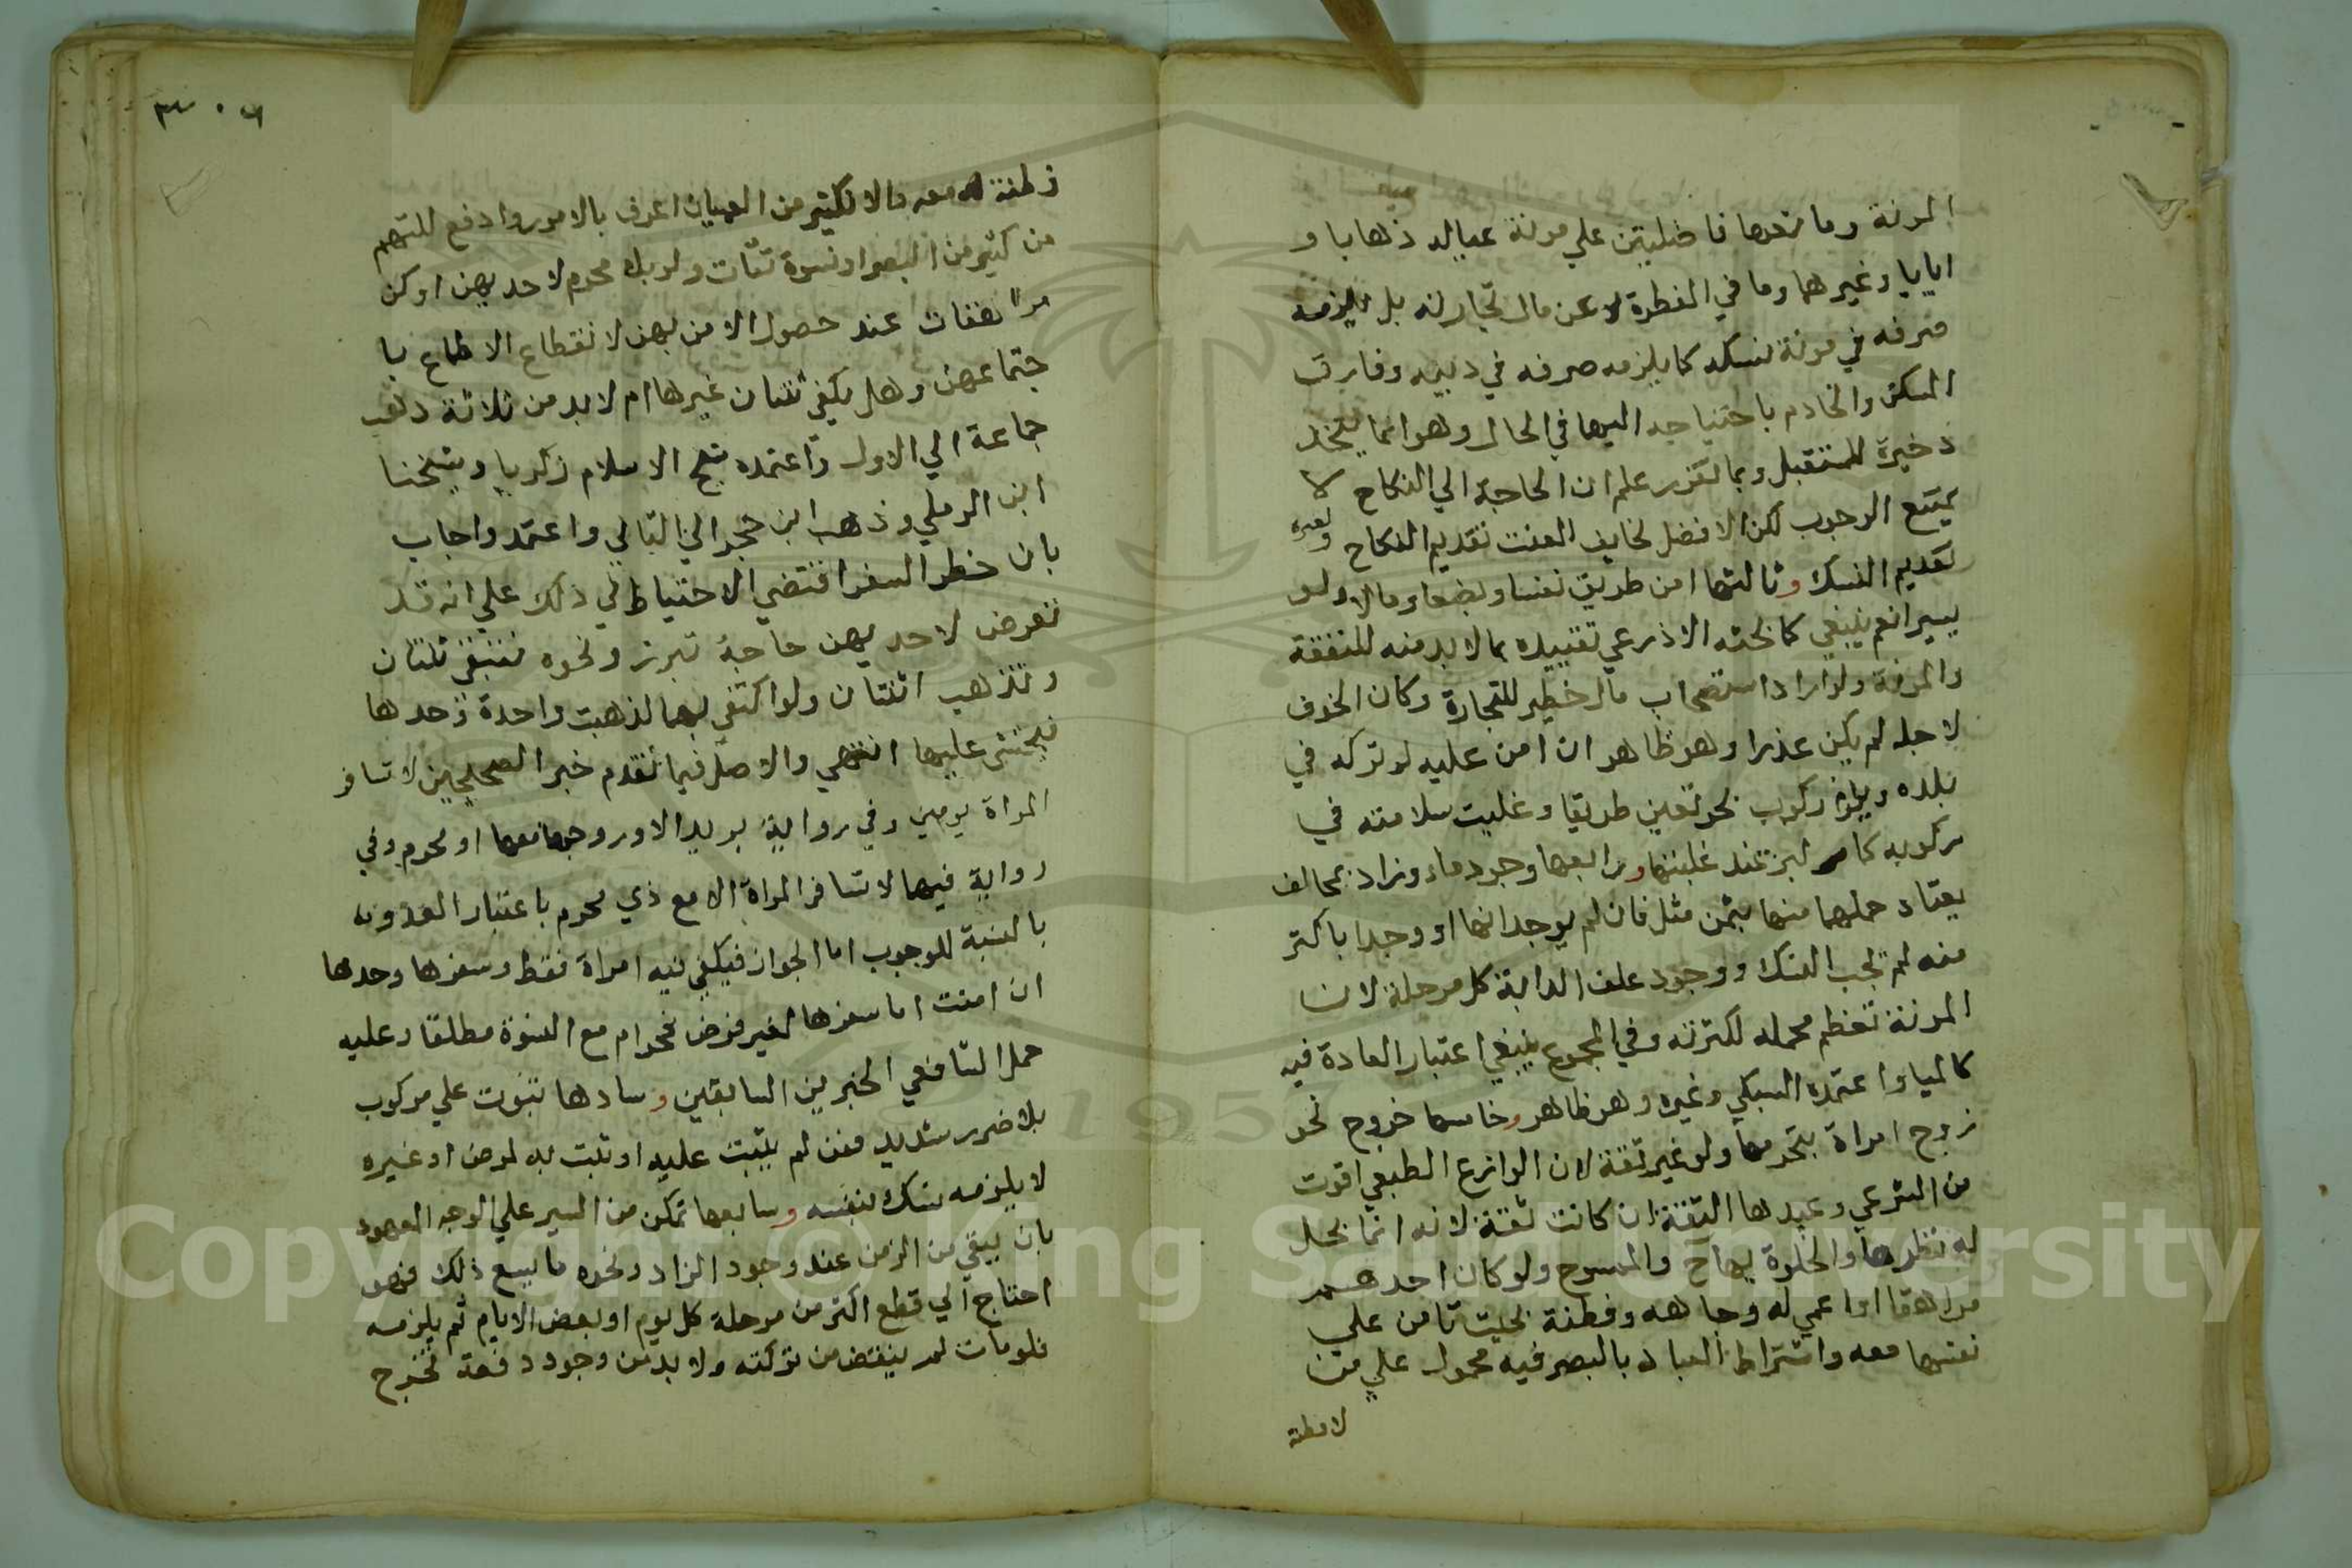 المونة وما معها فاضليتن علي مونة عياله ذهابا و
ايابا وغيرهما وما في الفطرة لا عن مال تجارته بل يلزمه
صرفه في مونة نسكه كما يلزمه صرفه في دينه وفارق
المسكن والخادم باحتياجه اليهما في الحال وهو انما يتخذ
ذخيرة للمستقبل وبما تقرر علم ان الحاجة الي النكاح لا
يمنع الوجوب لكن الافضل لخايف العنت تقديم النكاح ولغيره
تقديم النسك وثالثها امن طريق نفسا وبضعا ومالا ولو
يسيرا نعم ينبغي كما بحثه الاذرعي تقييده بما لا بد منه للنفقة
والمونة ولو اراد استصحاب مال خطير للتجارة وكان الخوف
لاجله لم يكن عذرا وهو ظاهر ان امن عليه لو تركه في
بلده ويلزم ركوب بحر تعين طريقا وغلبت سلامته في
ركوبه كما مر لبر عند غلبتها ورابعها وجود ماء وزاد بمحال
يعتاد حملهما منها بثمن مثل فان لم يوجد انها او وجدا باكثر
منه لم يجب النسك ووجود علف الدابة كل مرحلة لان
المونة تعظم بحمله لكثرته وفي المجموع ينبغي اعتبار العادة فيه
كالمياه واعتمده السبكي وغيره وهو ظاهر وخامسها خروج نحو
زوج امراة بتحرمها ولو غير ثقة لان الوازع الطبعي اقوت
من الشرعي وعبدها الثقة ان كانت ثقة لانه انما يحل
له نظرها والخلوة بها ح والممسوح ولو كان احدهم
مراهقا او اعمي له وجاهه وفطنة بحيث تامن علي
نفسها معه واشتراط العباد بالبصر فيه محمول علي من
لا فطنة
فطنة له معه والا فكثير من العميان اعرف بالامور وادفع للتهم
من كثير من البصرا ونسوة ثقات ولو بلا محرم لاحديهن او كن
مراهقات عند حصول الامن بهن لانقطاع الاطماع با
جتماعهن وهل يكفي ثنتان غيرها ام لا بد من ثلاثة ذهب
جماعة الي الاول واعتمده شيخ الاسلام زكريا وشيخنا
ابن الرملي وذهب ابن حجر الي الثاني واعتمد واجاب
بان خطر السفر اقتضي الاحتياط في ذلك علي انه قد
تعرض لاحديهن حاجة تبرز ونحوه فتبقي ثنتان
وتذهب اثنتان ولو اكتفي بهما لذهبت واحدة وحدها
فيخشي عليها انتهي والاصل فيما تقدم خبر الصحيحين لا تسافر
المراة يومين وفي رواية بريدا الا وزوجها معها او محرم وفي
رواية فيها لا تسافر المراة الا مع ذي محرم باعتبار العدد
بالنسبة للوجوب اما الجواز فيكفي فيه امراة فقط وسفرها وحدها
ان امنت اما سفرها لغير فرض فحرام مع النسوة مطلقا وعليه
حمل الشافعي الخبرين السابقين وسادها ثبوت علي مركوب
بلا ضرر شديد فمن لم يثبت عليه او ثبت به لمرض او غيره
لا يلزمه نسك بنفسه وسابعها تمكن من السير علي الوجه المعهود
بان يبقي من الزمن عند وجود الزاد ونحوه ما يسع ذلك فهو
احتاج الي قطع اكثر من مرحلة كل يوم او بعض الايام ثم يلزمه
فلو مات لم ينقض من تركته ولا بد من وجود رفقة تخرج
Copyright © King Saud University
1957